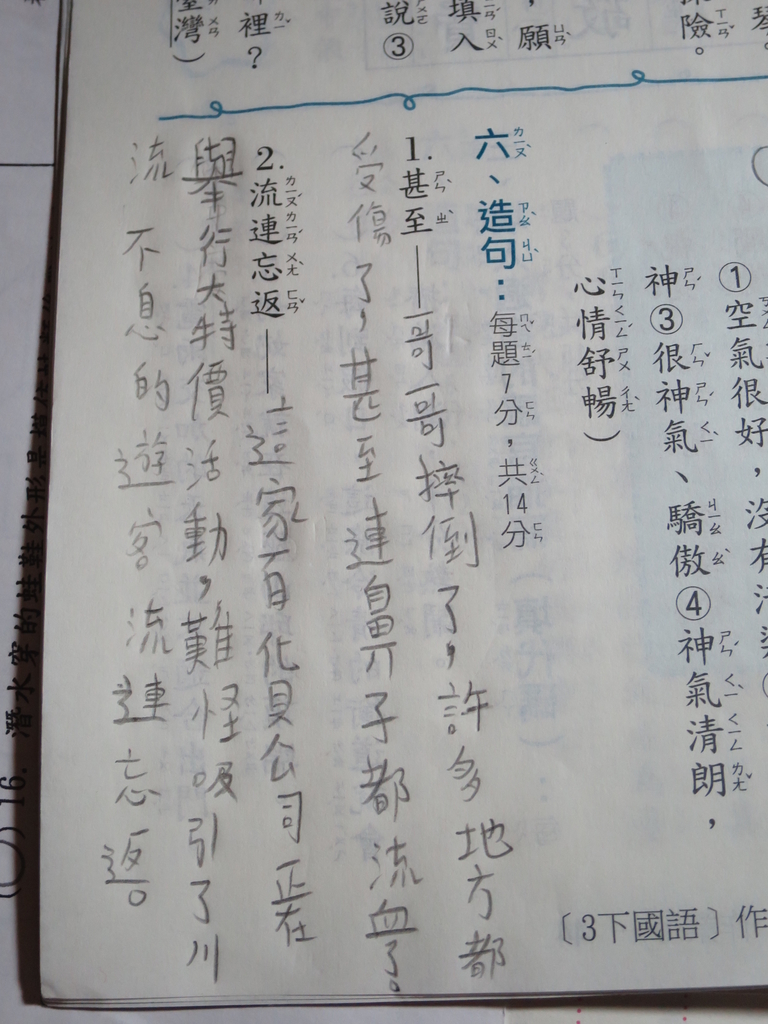 險。
,願
填入
說③
裡?
臺灣)
①空氣很好,沒有
神③很神氣、驕傲④神氣清朗,
心情舒暢)
六、造句:每題7分,共14分
1.甚至——哥哥摔倒了,許多地方都
受傷了,甚至連鼻子都流血了。
2.流連忘返——這家百化貝公司正在
舉行大特價活動,難怪吸引了川
流不息的遊客流連忘返。
〔3下國語〕作
16.潛水穿的蛙鞋外形是模仿